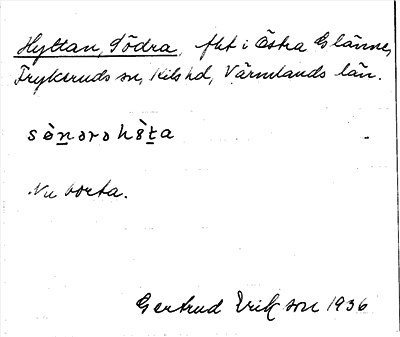 Hyttan, Södra, fht i Östra Glänne,
Frykeruds sn, Kils hd, Värmlands län.
sènərəhs̀ta
Nu borta.
Gertrud Erikson 1936